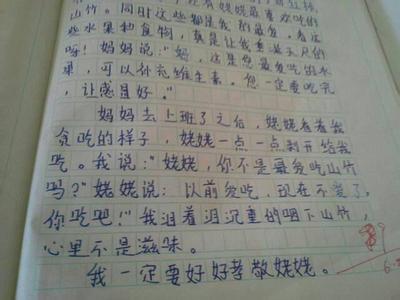 还有姥姥最喜欢吃的
山竹。同时这些都是我的最爱,看这
些水果和食物,真是让我垂涎三尺
呀!妈妈说:"妈,这是您最爱吃的水
果,可以补充维生素。您一定要吃完
,让感冒好。"
妈妈去上班了之后,姥姥看着我
贪吃的样子,姥姥一点一点剥开给我
吃。我说:"姥姥,你不是最爱吃山竹
吗?"姥姥说:以前爱吃,现在不爱了,
你吃吧!"我泪着泪沉重的咽下山竹,
心里不是滋味。
我一定要好好孝敬姥姥。